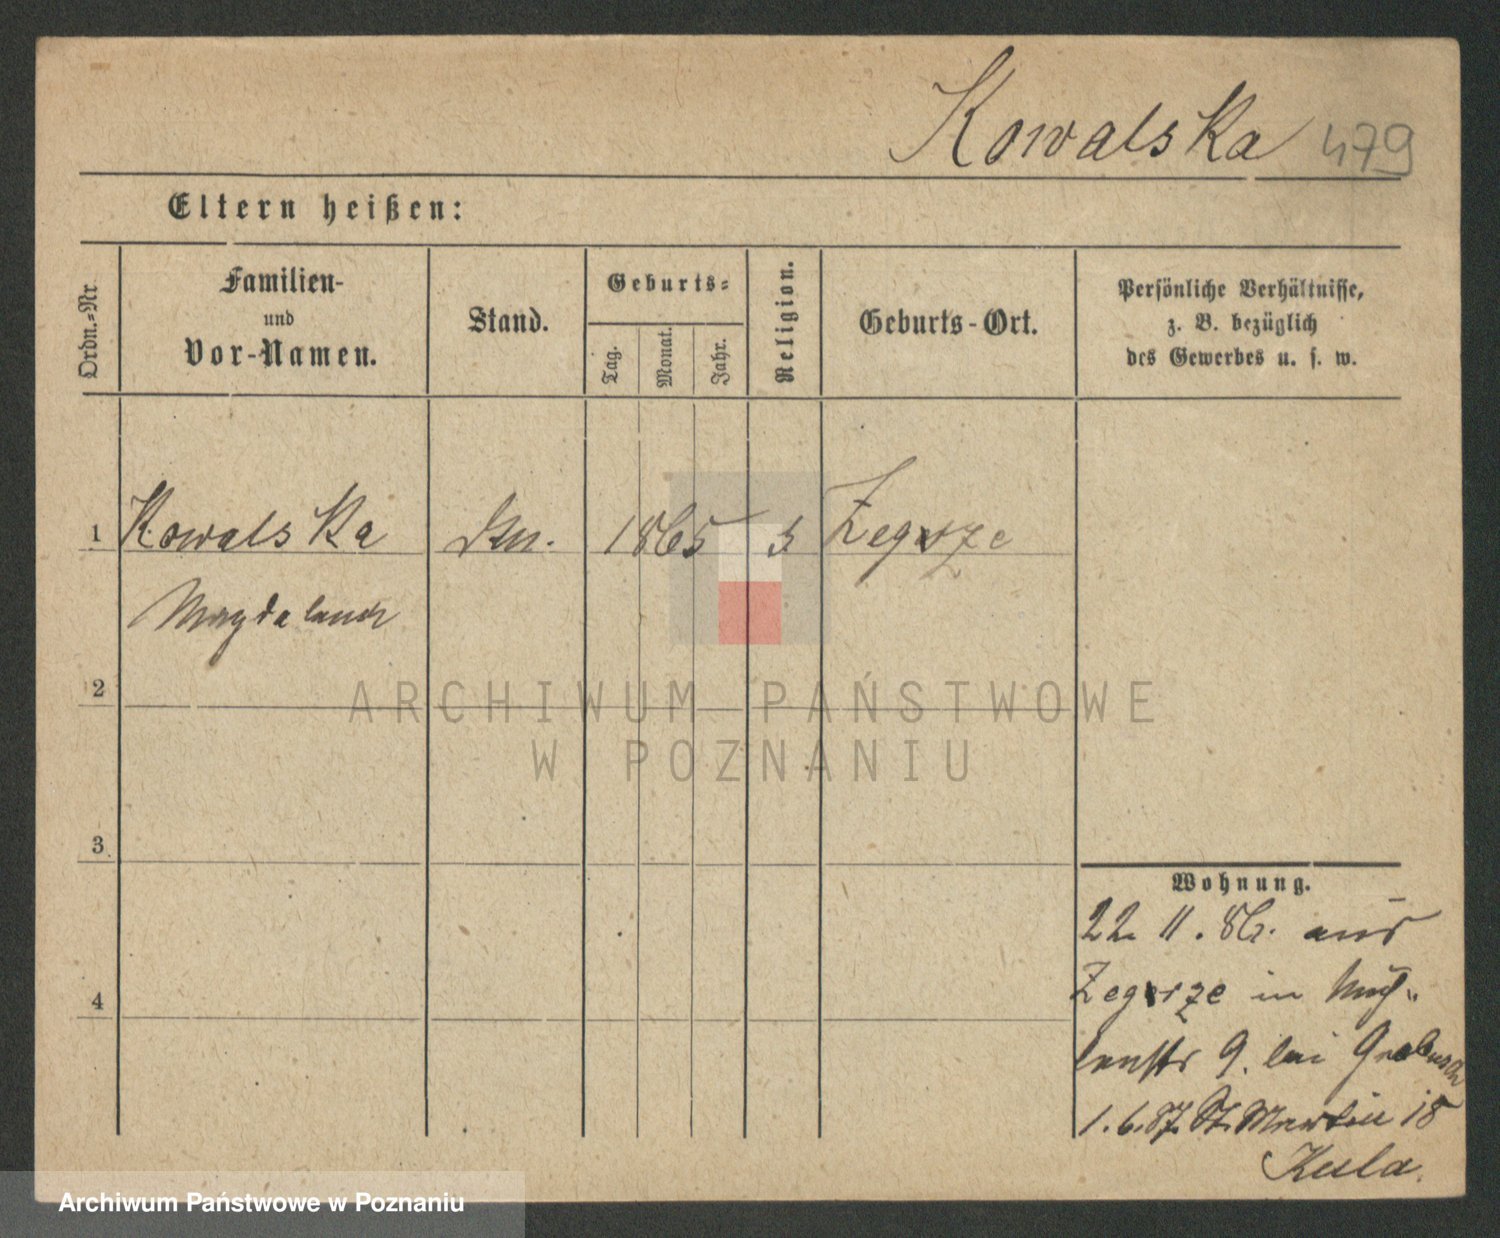 Kowalska 479
Eltern heißen:
Ordn.-Nr
Familien-
und
Vor-Namen.
Stand.
Geburts-
Tag.
Monat.
Jahr.
Religion.
Geburts-Ort.
Persönliche Verhältnisse,
z. B. bezüglich
des Gewerbes u. s. w.
1 Kowalska 1865 Zegrze
Magdalena
2
3
4
Wohnung.
22 11. 86. aus
Zegrze in Müh-
lenstr 9. bei
1. 6. 87. St. Martin 18
Kula.
ARCHIWUM PAŃSTWOWE
W POZNANIU
Archiwum Państwowe w Poznaniu